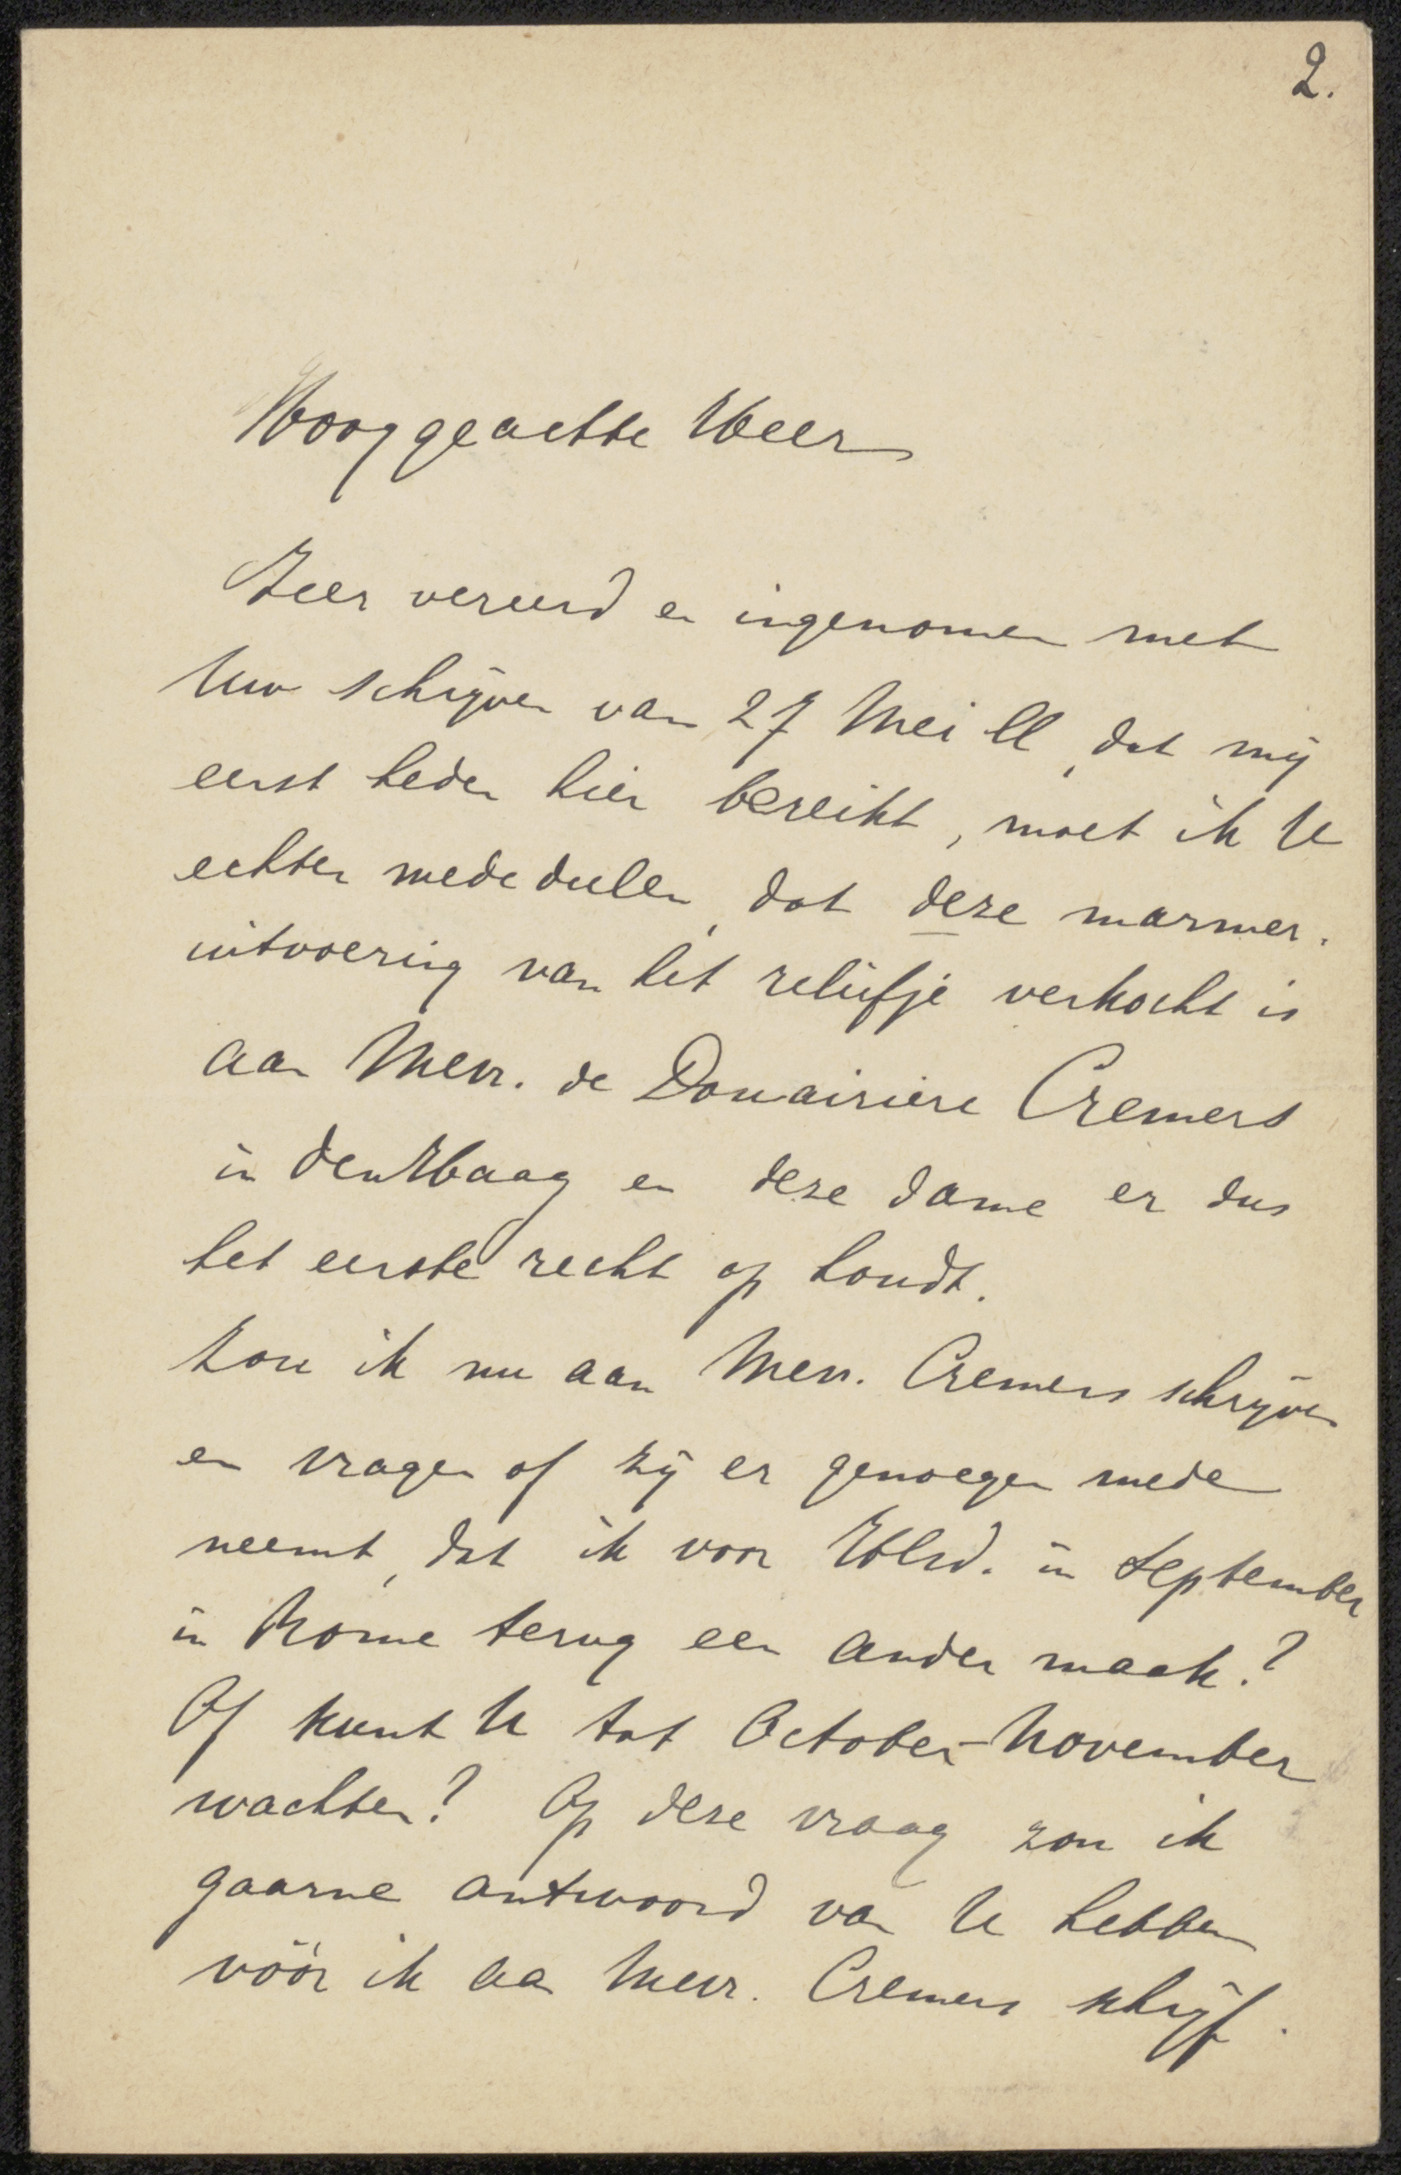 2.
Hooggeachte Heer
Zeer vereerd en ingenomen met
Uw schrijven van 27 Mei ll, dat mij
eerst heden hier bereikt, moet ik U
echter mededeelen, dat deze marmer-
uitvoering van het reliëfje verkocht is
aan Mevr. de Douairiere Cremers
in den Haag en deze dame er dus
het eerste recht op houdt.
Zou ik nu aan Mevr. Cremers schrijven
en vragen of zij er genoegen mede
neemt, dat ik voor HEd. in September
in Rome terug een ander maak?
Of kunt U tot October-November
wachten? Op deze vraag zou ik
gaarne antwoord van U hebben
vóór ik aan Mevr. Cremers schrijf.